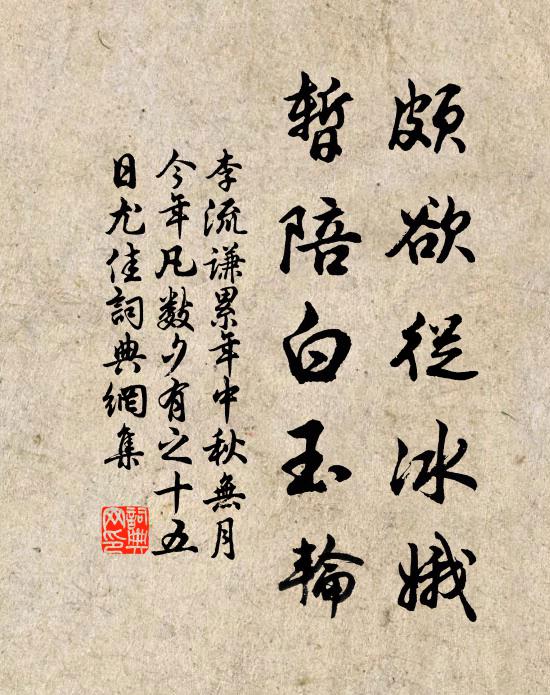 頗欲從冰娥
暫陪白玉輪
李流謙累年中秋無月
今年凡數夕有之十五
日尤佳詞典網集
詞典
网印